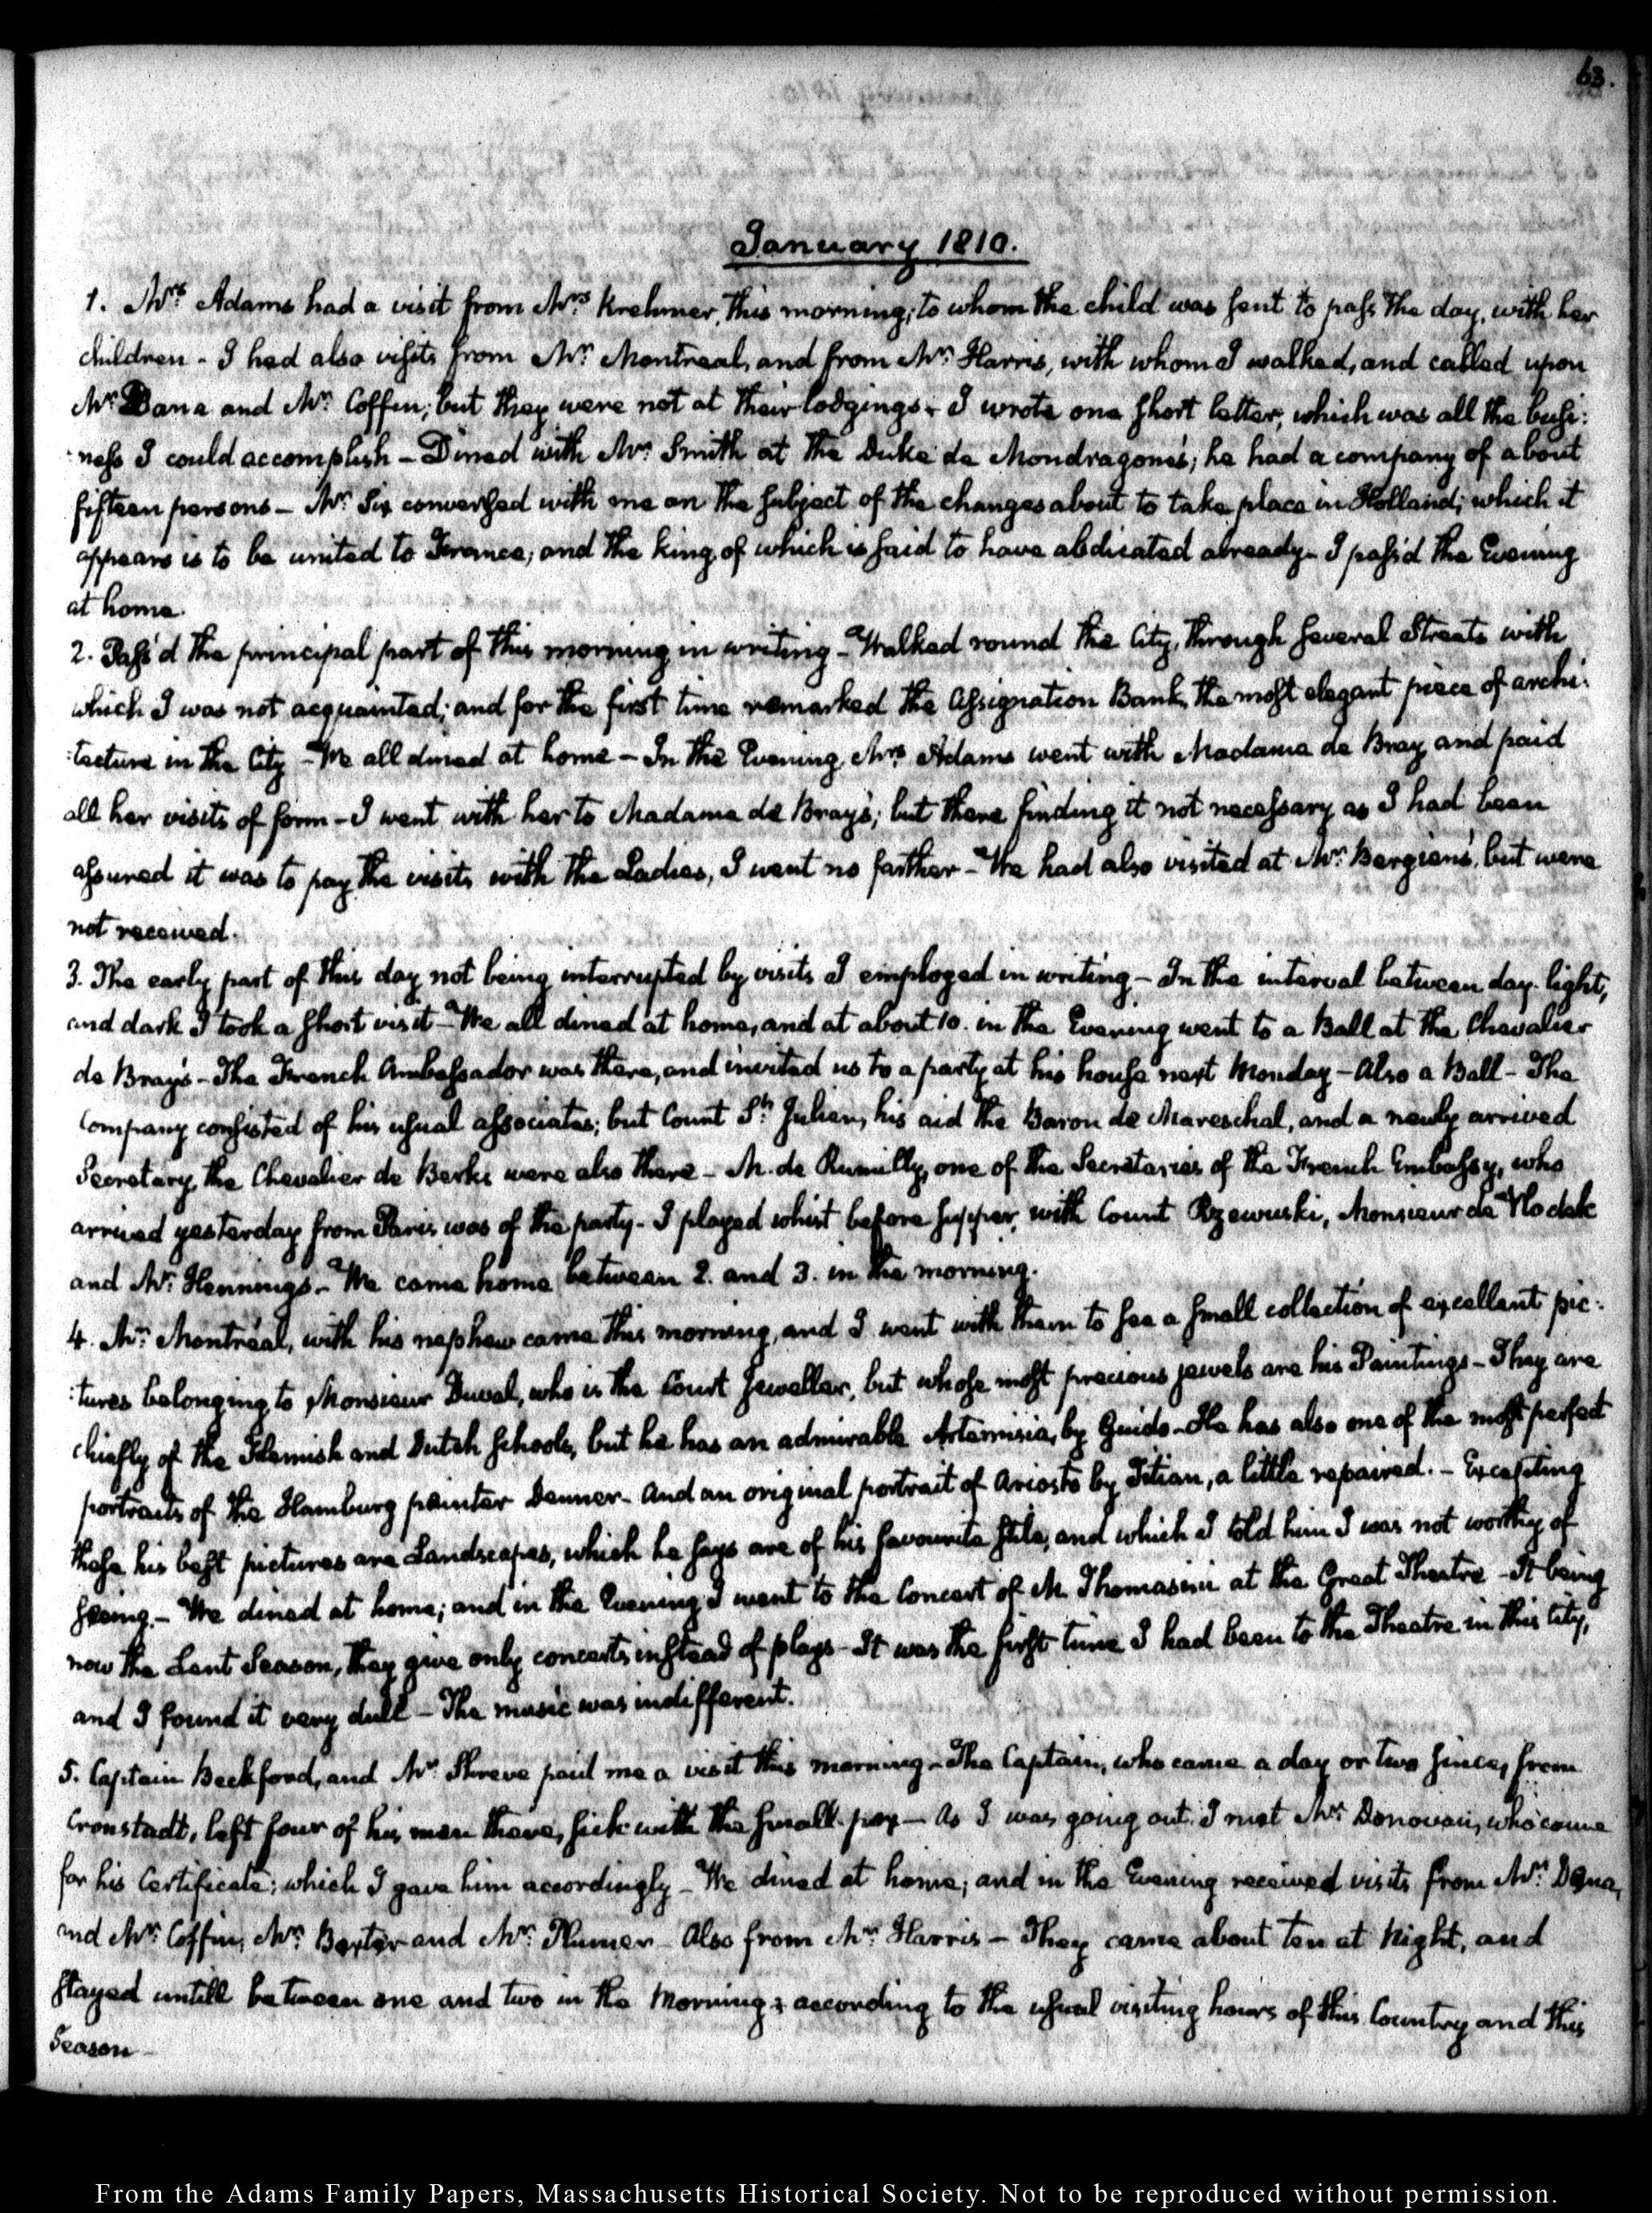 63.
January 1810.
1. Mrs. Adams had a visit from Mrs. Krehmer, this morning; to whom the child was sent to pass the day, with her
children - I had also visits from Mr. Montreal, and from Mr. Harris, with whom I walked, and called upon
Mr. Dana and Mr. Coffin; but they were not at their lodgings - I wrote one short letter, which was all the busi:
:ness I could accomplish - Dined with Mr. Smith at the Duke de Mondragone's; he had a company of about
fifteen persons - Mr. Six conversed with me on the subject of the changes about to take place in Holland; which it
appears is to be united to France; and the king of which is said to have abdicated already - I pass'd the Evening
at home.
2. Pass'd the principal part of this morning in writing - Walked round the City, through several Streets with
which I was not acquainted; and for the first time remarked the Assignation Bank, the most elegant piece of archi:
:tecture in the City - We all dined at home - In the Evening, Mrs. Adams went with Madame de Bray and paid
all her visits of form - I went with her to Madame de Bray's; but there finding it not necessary as I had been
assured it was to pay the visits with the Ladies, I went no farther - We had also visited at Mr. Bergien's, but were
not received.
3. The early part of this day not being interrupted by visits I employed in writing - In the interval between day-light,
and dark I took a short visit - We all dined at home, and at about 10. in the Evening went to a Ball at the Chevalier
de Bray's - The French Ambassador was there, and invited us to a party at his house next Monday - Also a Ball - The
Company consisted of his usual associates; but Count St. Julien, his aid the Baron de Mareschal, and a newly arrived
Secretary, the Chevalier de Berks were also there - M. de Rumilly, one of the Secretaries of the French Embassy, who
arrived yesterday from Paris was of the party - I played whist before supper, with Count Rzewuski, Monsieur de Vlodek
and Mr. Hennings - We came home between 2. and 3. in the morning.
4. Mr. Montréal, with his nephew came this morning, and I went with them to see a small collection of excellent pic:
:tures belonging to Monsieur Duval, who is the Court Jeweller, but whose most precious jewels are his Paintings - They are
chiefly of the Flemish and Dutch schools, but he has an admirable Artemisia, by Guido - He has also one of the most perfect
portraits of the Hamburg painter Denner - And an original portrait of Ariosto by Titian, a little repaired. - Excepting
these his best pictures are Landscapes, which he says are of his favourite stile, and which I told him I was not worthy of
seeing. - We dined at home; and in the Evening I went to the Concert of M. Thomasini at the Great Theatre - It being
now the Lent Season, they give only concerts instead of plays - It was the first time I had been to the Theatre in this City,
and I found it very dull - The music was indifferent.
5. Captain Beckford, and Mr. Shreve paid me a visit this morning - The Captain, who came a day or two since, from
Cronstadt, left four of his men there, sick with the small-pox - As I was going out I met Mr. Donovan, who came
for his Certificate; which I gave him accordingly - We dined at home; and in the Evening received visits from Mr. Dana,
and Mr. Coffin, Mr. Baxter and Mr. Plumer - Also from Mr. Harris - They came about ten at Night, and
stayed untill between one and two in the Morning; according to the usual visiting hours of this Country and this
Season -
From the Adams Family Papers, Massachusetts Historical Society. Not to be reproduced without permission.